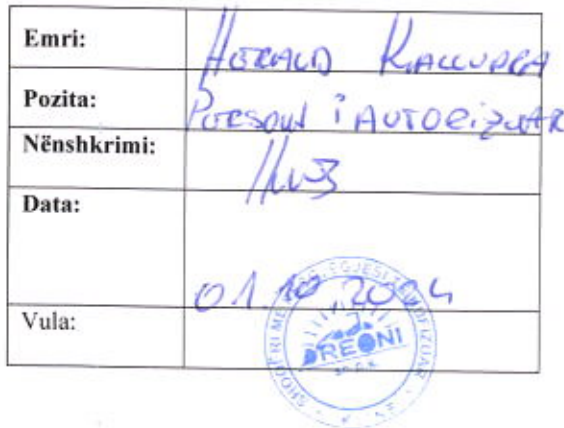 Emri: HERALD KALLUPRA
Pozita: PERSONI I AUTORIZUAR
Nënshkrimi:
Data: 01.10 2024
Vula: DREONI